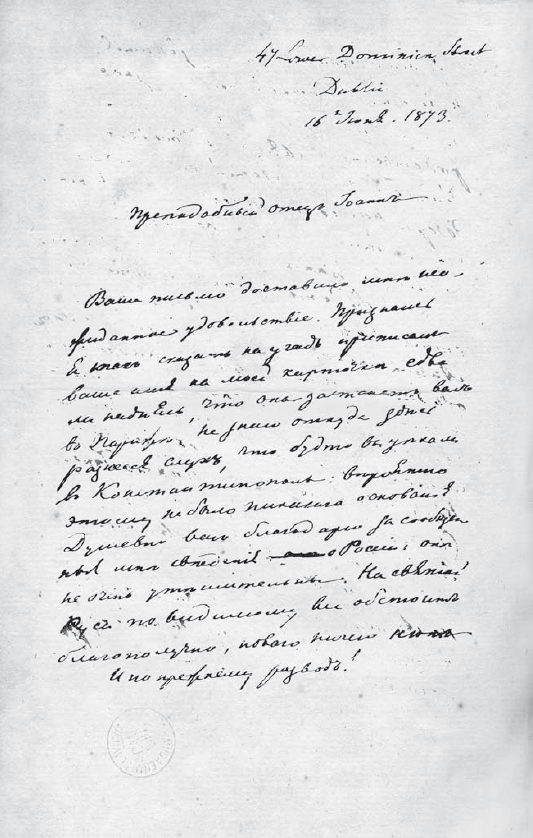 47 Lower Dominick Street
Dublin
16 Іюня. 1873.
Преподобный отецъ Іоаннъ
Ваше письмо доставило мнѣ нео-
жиданное удовольствіе. Признаюсь
я такъ сказать на угадъ приписалъ
ваше имя на моей карточкѣ едва
ли надѣясь, что она застанетъ васъ
въ Парижѣ, не знаю откуда здѣсь
разнесся слухъ, что будто вы уѣхали
в Константинополь: вѣроятно
этому не было никакого основанія
Душевно васъ благодарю за сообще
нія мнѣ свѣденія о Россіи; они
не очень утѣшительны. На святой
Руси по видимому все обстоитъ
благополучно, новаго ничего
И по прежнему разводъ!